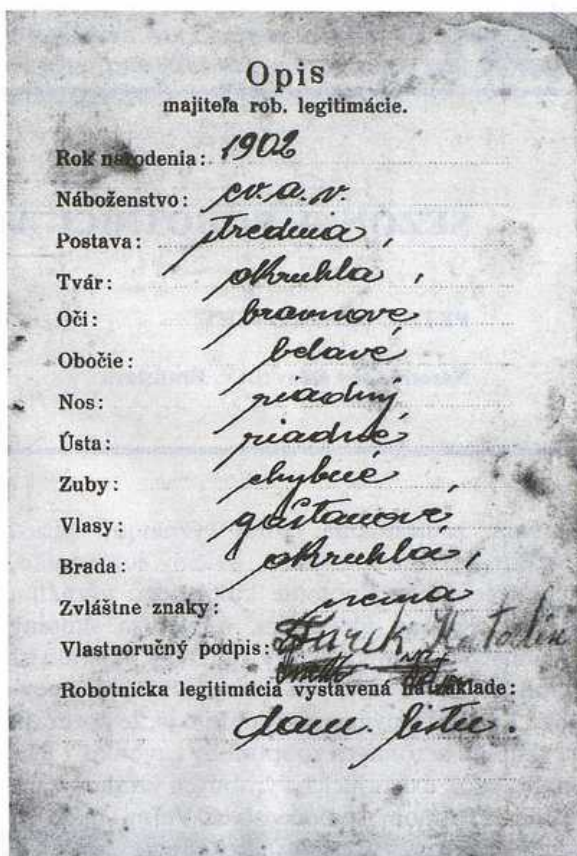 Opis
majiteľa rob. legitimácie.
Rok narodenia: 1902
Náboženstvo: ev. a. v.
Postava: strednia,
Tvár: okruhla,
Oči: bravnové
Obočie: belavé
Nos: riadný
Ústa: riadné
Zuby: chybné,
Vlasy: gaštanové,
Brada: okruhlá,
Zvláštne znaky: nema
Vlastnoručný podpis:
Robotnicka legitimácia vystavená na základe:
dom. listu.